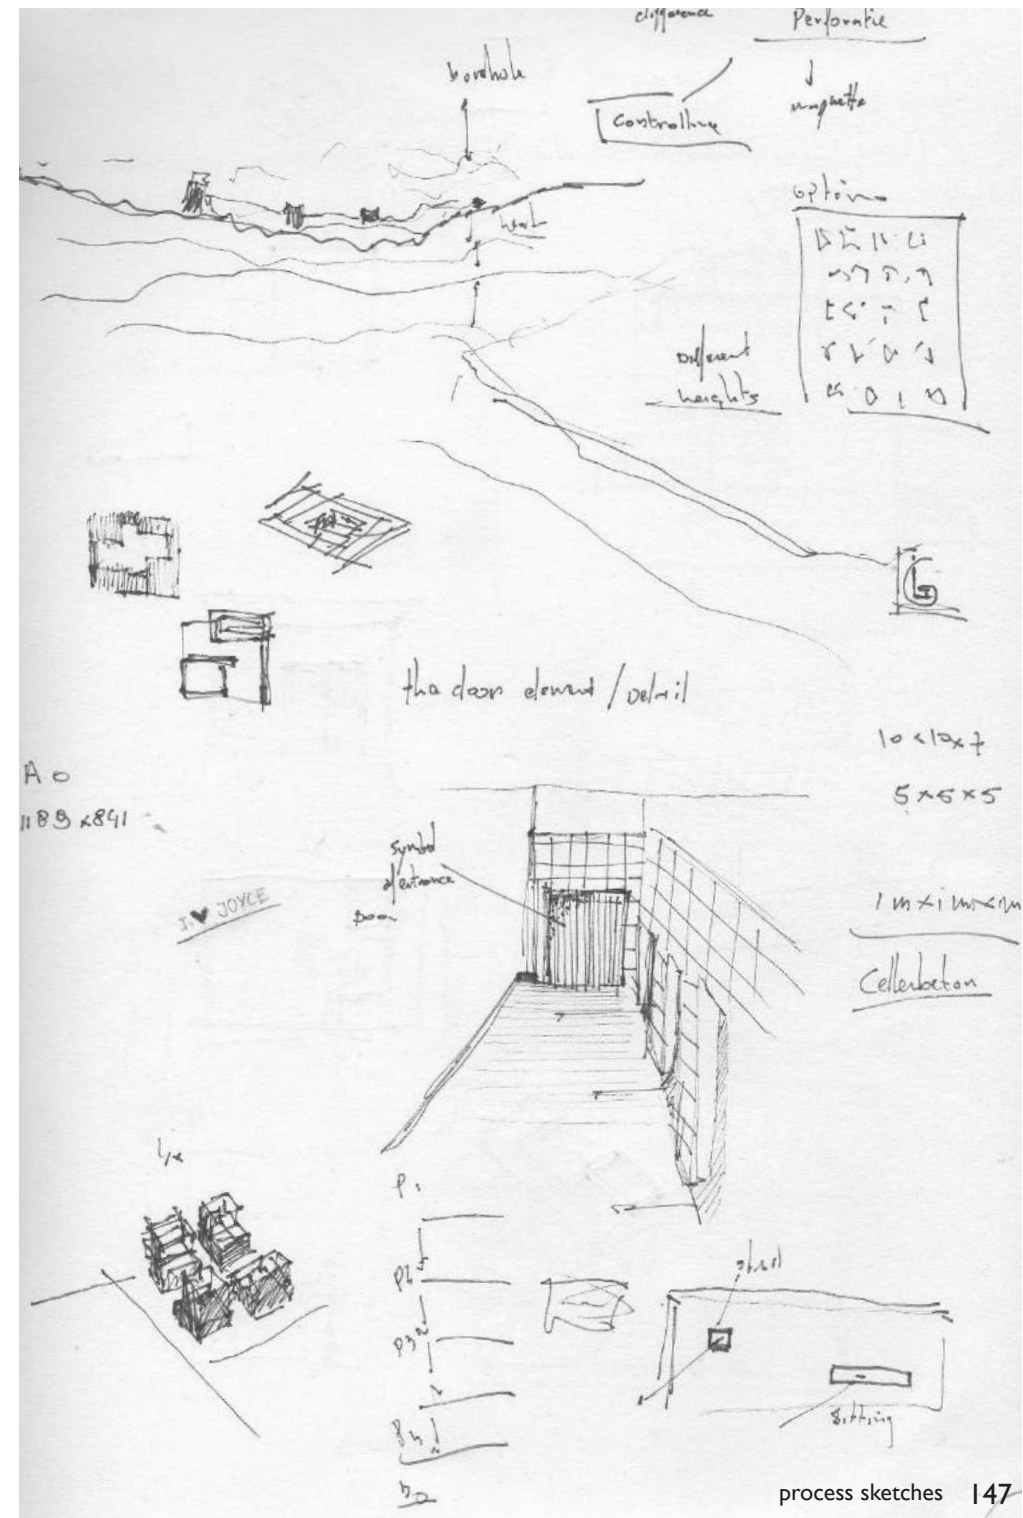 difference
Perforatie
borehole
maquette
Controlling
options
heat
Different
heights
the door element / Detail
10 x 12 x 7
A0
5 x 5 x 5
1189 x 841
symbol
of entrance
Door
I ♥ JOYCE
1m x 1m x 1m
Cellenbeton
4x
P1
P2
P3
sitting
process sketches 147